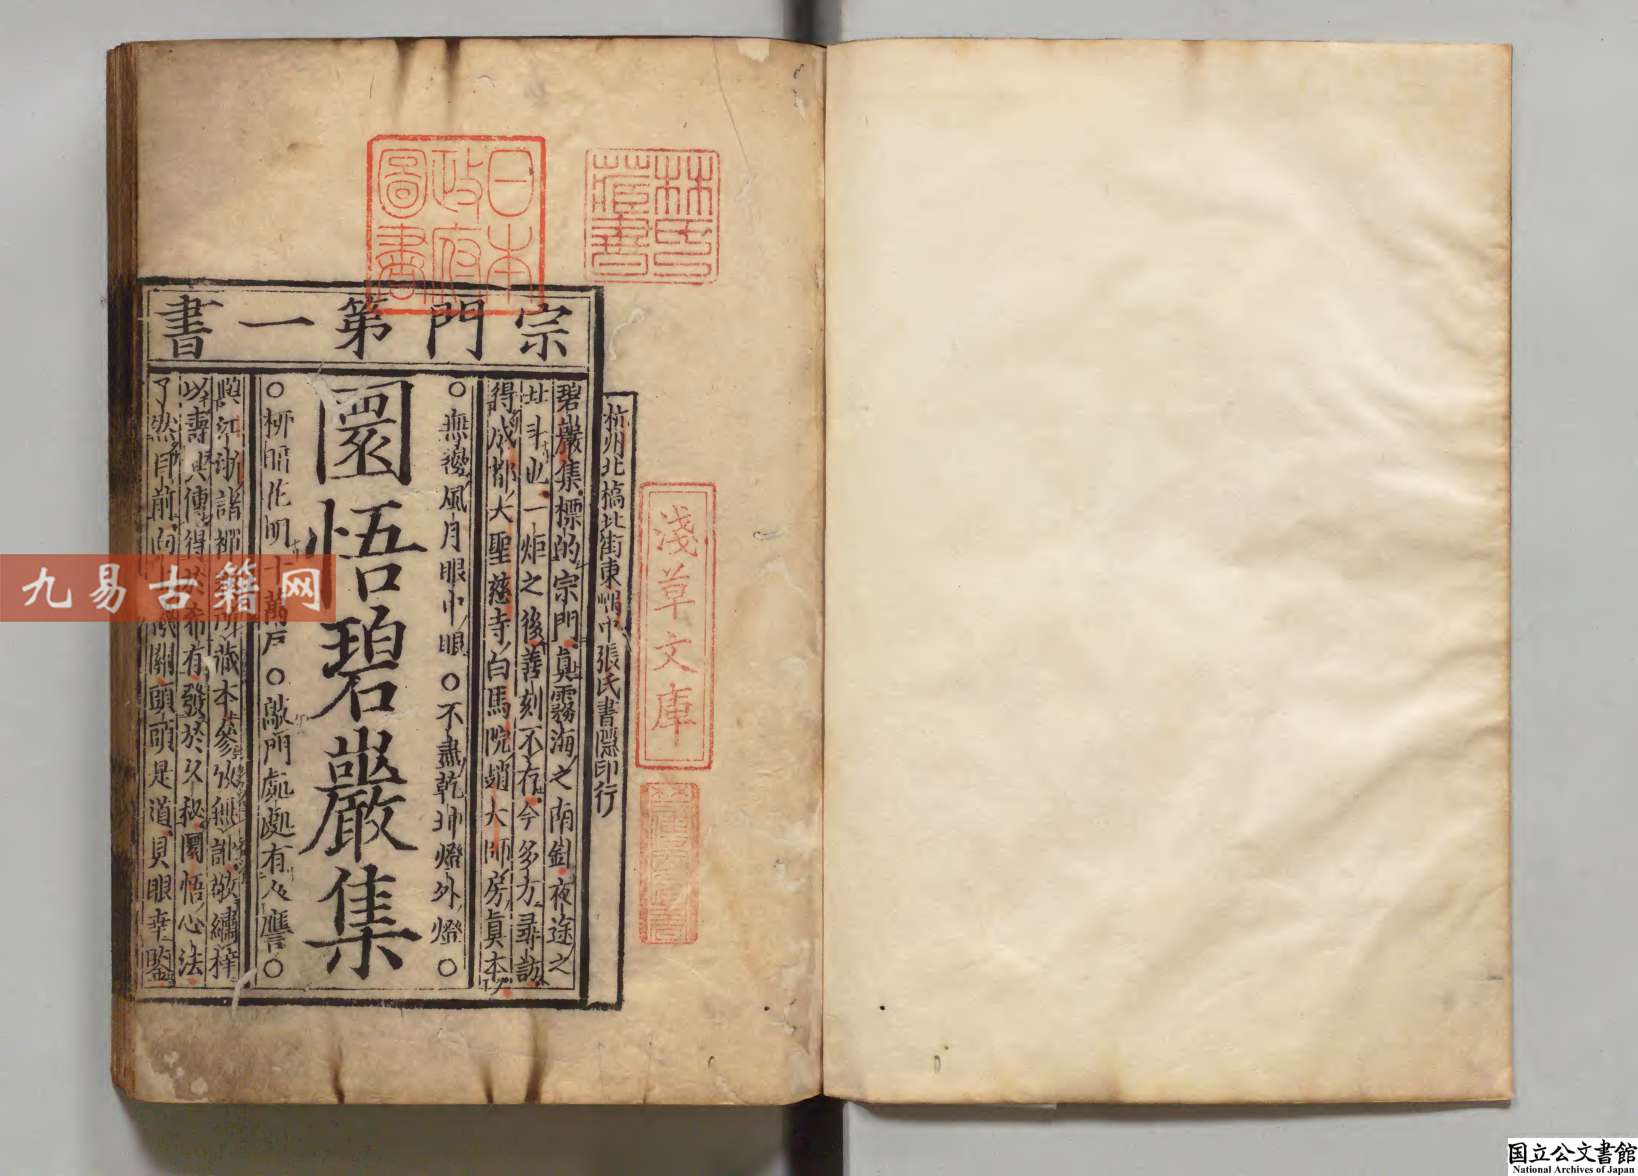 日本
政府
圖書
林氏
藏書
宗門第一書
杭州北橋北街東嵎中張氏書隱印行
淺草文庫
碧巖集標的宗門眞霧海之南針夜途之
北斗也一炬之後善刻不存今多方尋訪
得成都大聖慈寺白馬院趙大師房眞本
○無邊風月眼中眼○不盡乾坤燈外燈○
圜悟碧巖集
○柳暗花明十萬戶○敲門處處有人譍○
與江浙諸禪 所藏本參攷無訛敬繡梓
以壽其傳得於希有發於久秘圜悟心法
了然目前向 機關頭頭是道具眼幸鑒
九易古籍网
国立公文書館
National Archives of Japan